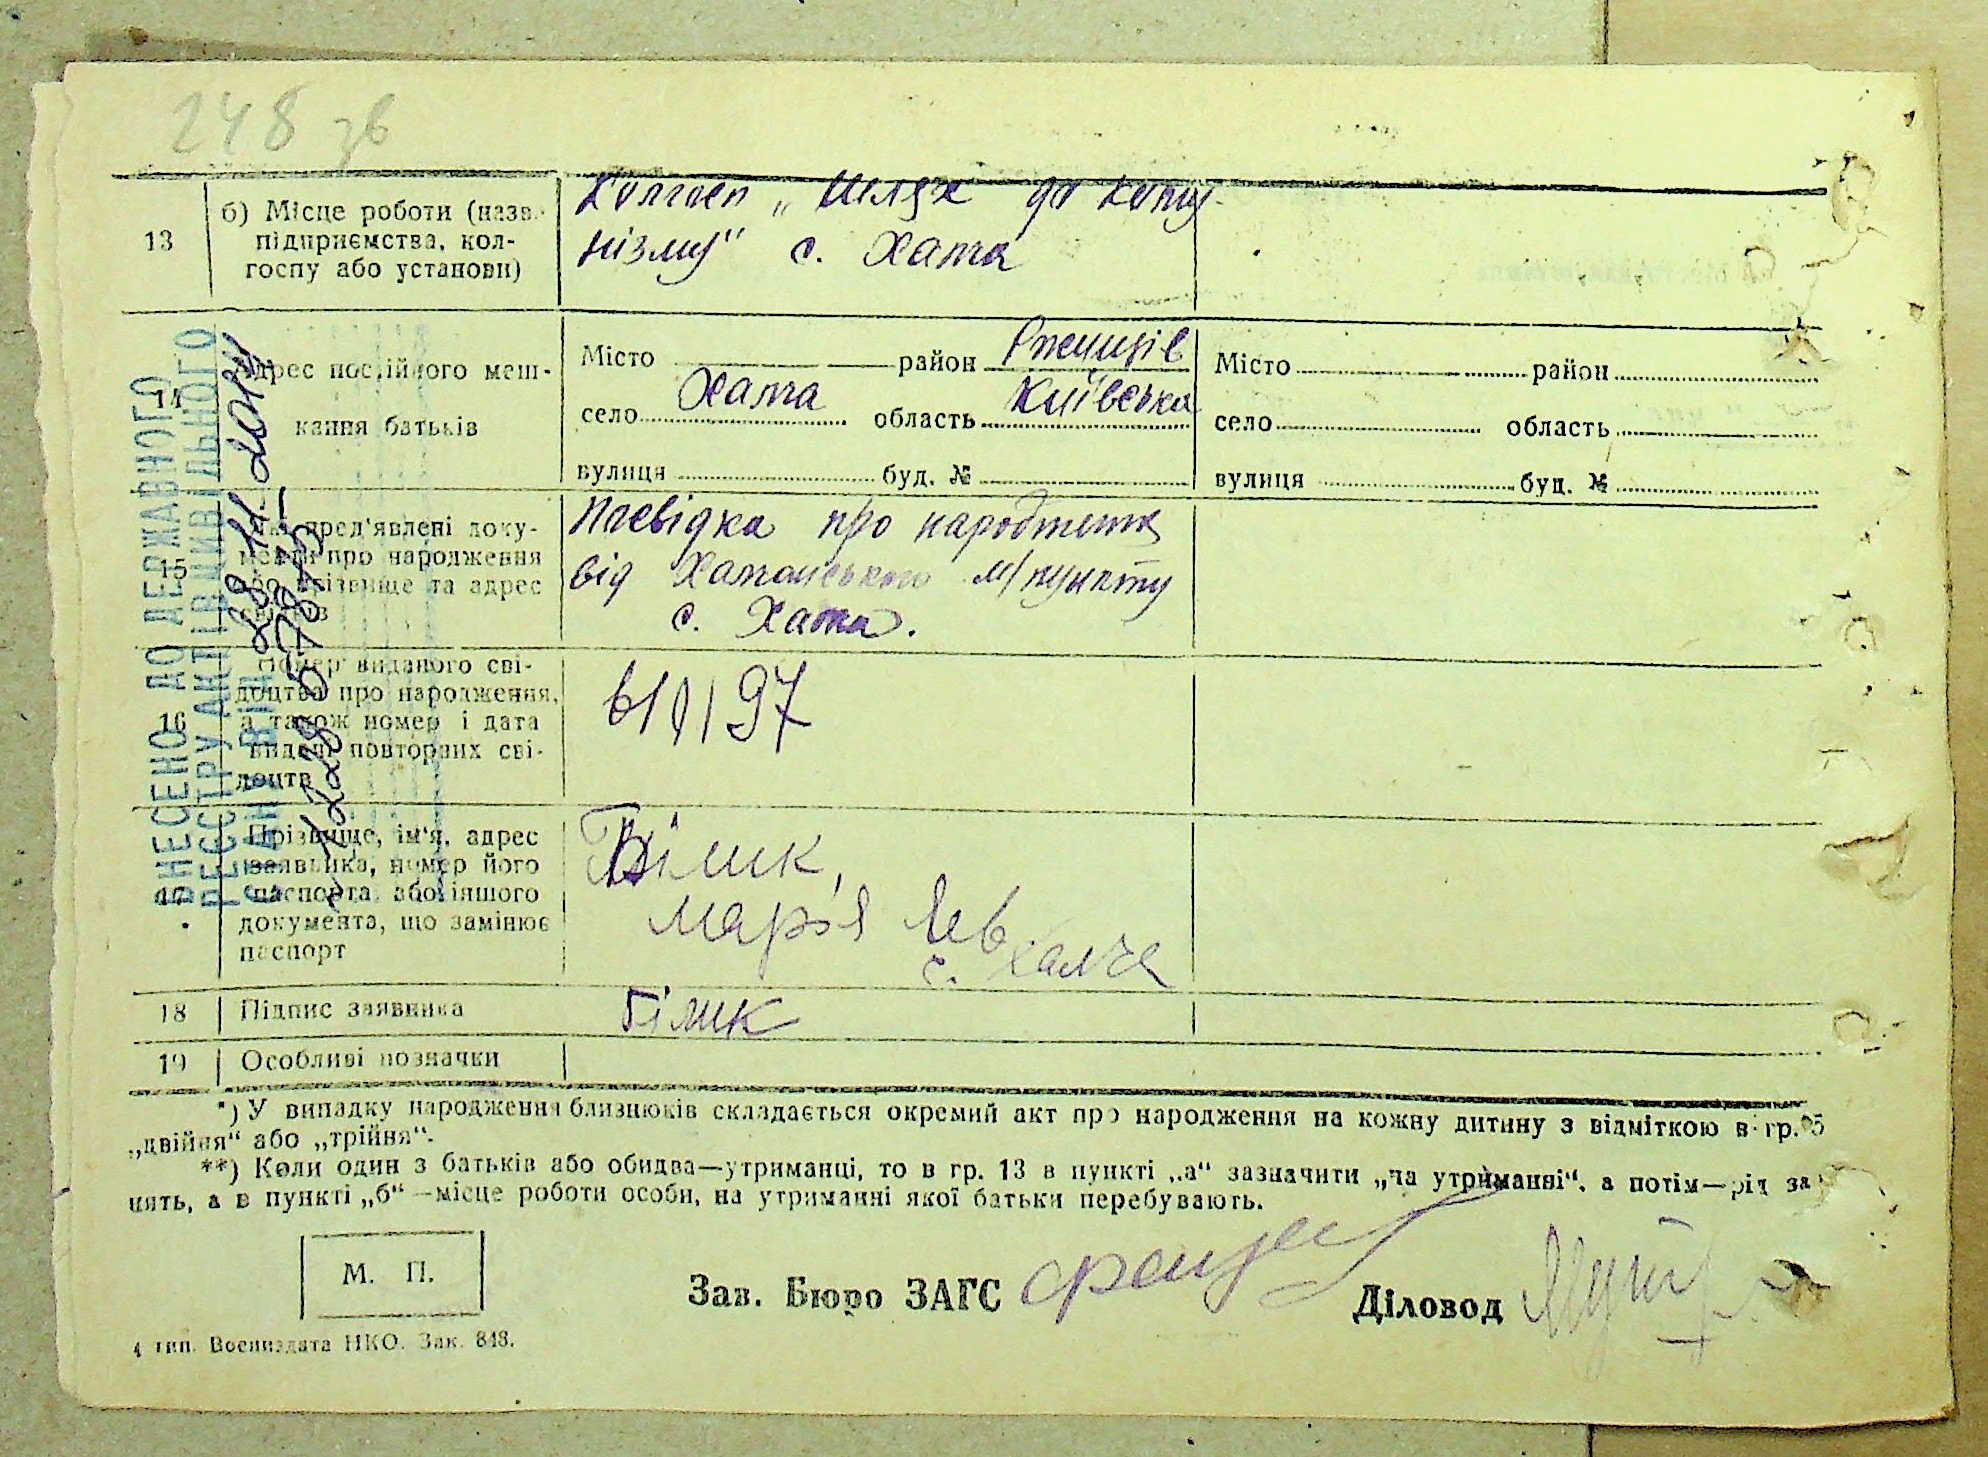 248 зв
13
б) Місце роботи (назв.
підприємства, кол-
госпу або установи)
Колгосп „Шлях до кому-
нізму" с. Халча
14
Адрес постійного меш-
кання батьків
Місто район Ржищів
село Халча область Київська
вулиця буд. №
Місто район
село область
вулиця буд. №
15
пред'явлені доку-
менти про народження
або прізвище та адрес
свідків
Посвідка про народження
від Халчанського м/пункту
с. Халча.
16
Номер виданого сві-
доцтва про народження,
а також номер і дата
видачі повторних сві-
доцтв
97
17
Прізвище, ім'я, адрес
заявника, номер його
паспорта або іншого
документа, що замінює
паспорт
Білик,
Марія
с. Халча
18
Підпис заявника
Білик
19
Особливі позначки
ВНЕСЕНО ДО ДЕРЖАВНОГО
РЕЄСТРУ АКТІВ ЦИВІЛЬНОГО
СТАНУ ВІД
*) У випадку народження близнюків складається окремий акт про народження на кожну дитину з відміткою в гр. 5
„двійня“ або „трійня“.
**) Коли один з батьків або обидва—утриманці, то в гр. 13 в пункті „а“ зазначити „на утриманні“, а потім—рід за
нять, а в пункті „б“—місце роботи особи, на утриманні якої батьки перебувають.
М. П.
Зав. Бюро ЗАГС
Діловод
4 тип. Воениздата НКО. Зак. 848.